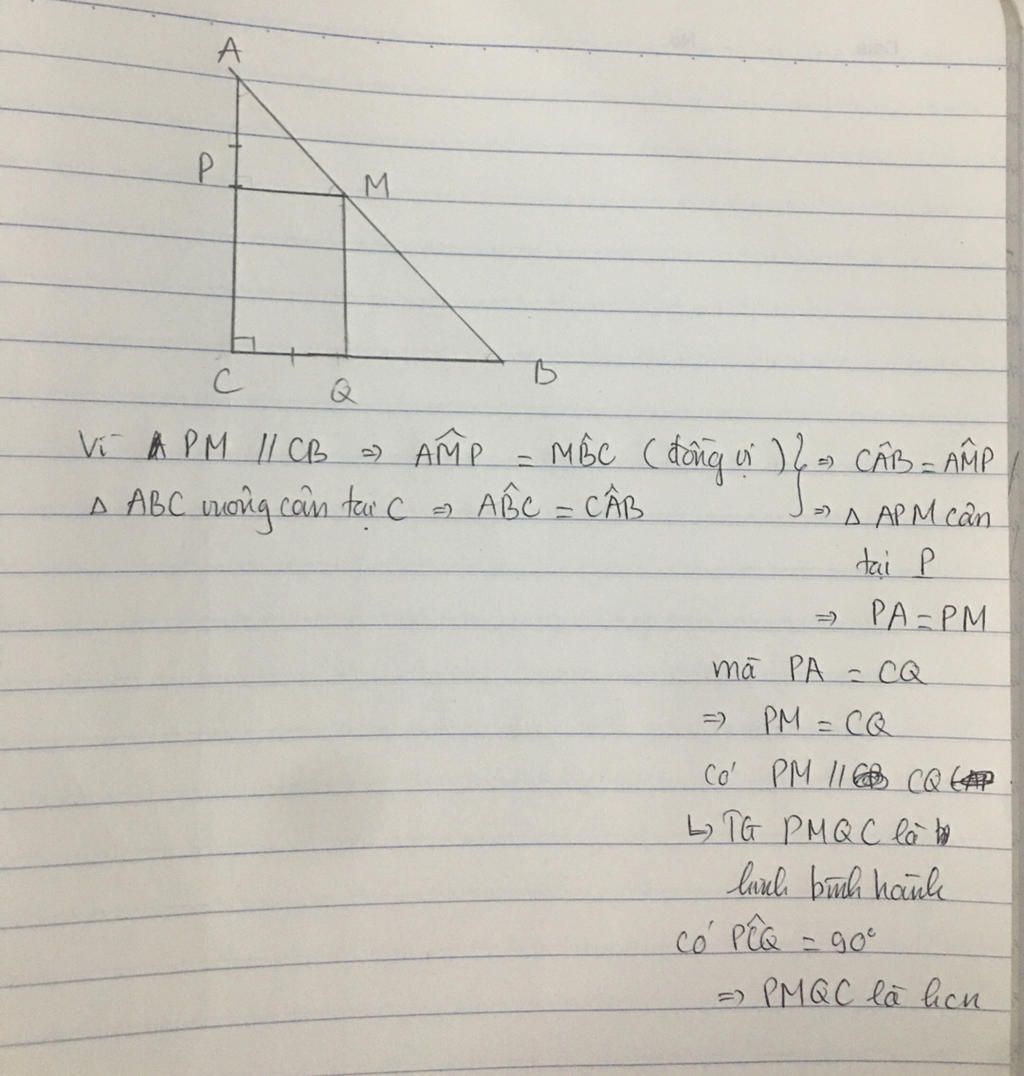 A
P
M
C
Q
B
Vì PM // CB ⇒ AM̂P = MB̂C (đồng vị) } ⇒ CÂB = AM̂P
Δ ABC vuông cân tại C ⇒ AB̂C = CÂB ⇒ Δ APM cân
tại P
⇒ PA = PM
mà PA = CQ
⇒ PM = CQ
có PM // CQ
↳ TG PMQC là
hình bình hành
có PĈQ = 90°
⇒ PMQC là hcn